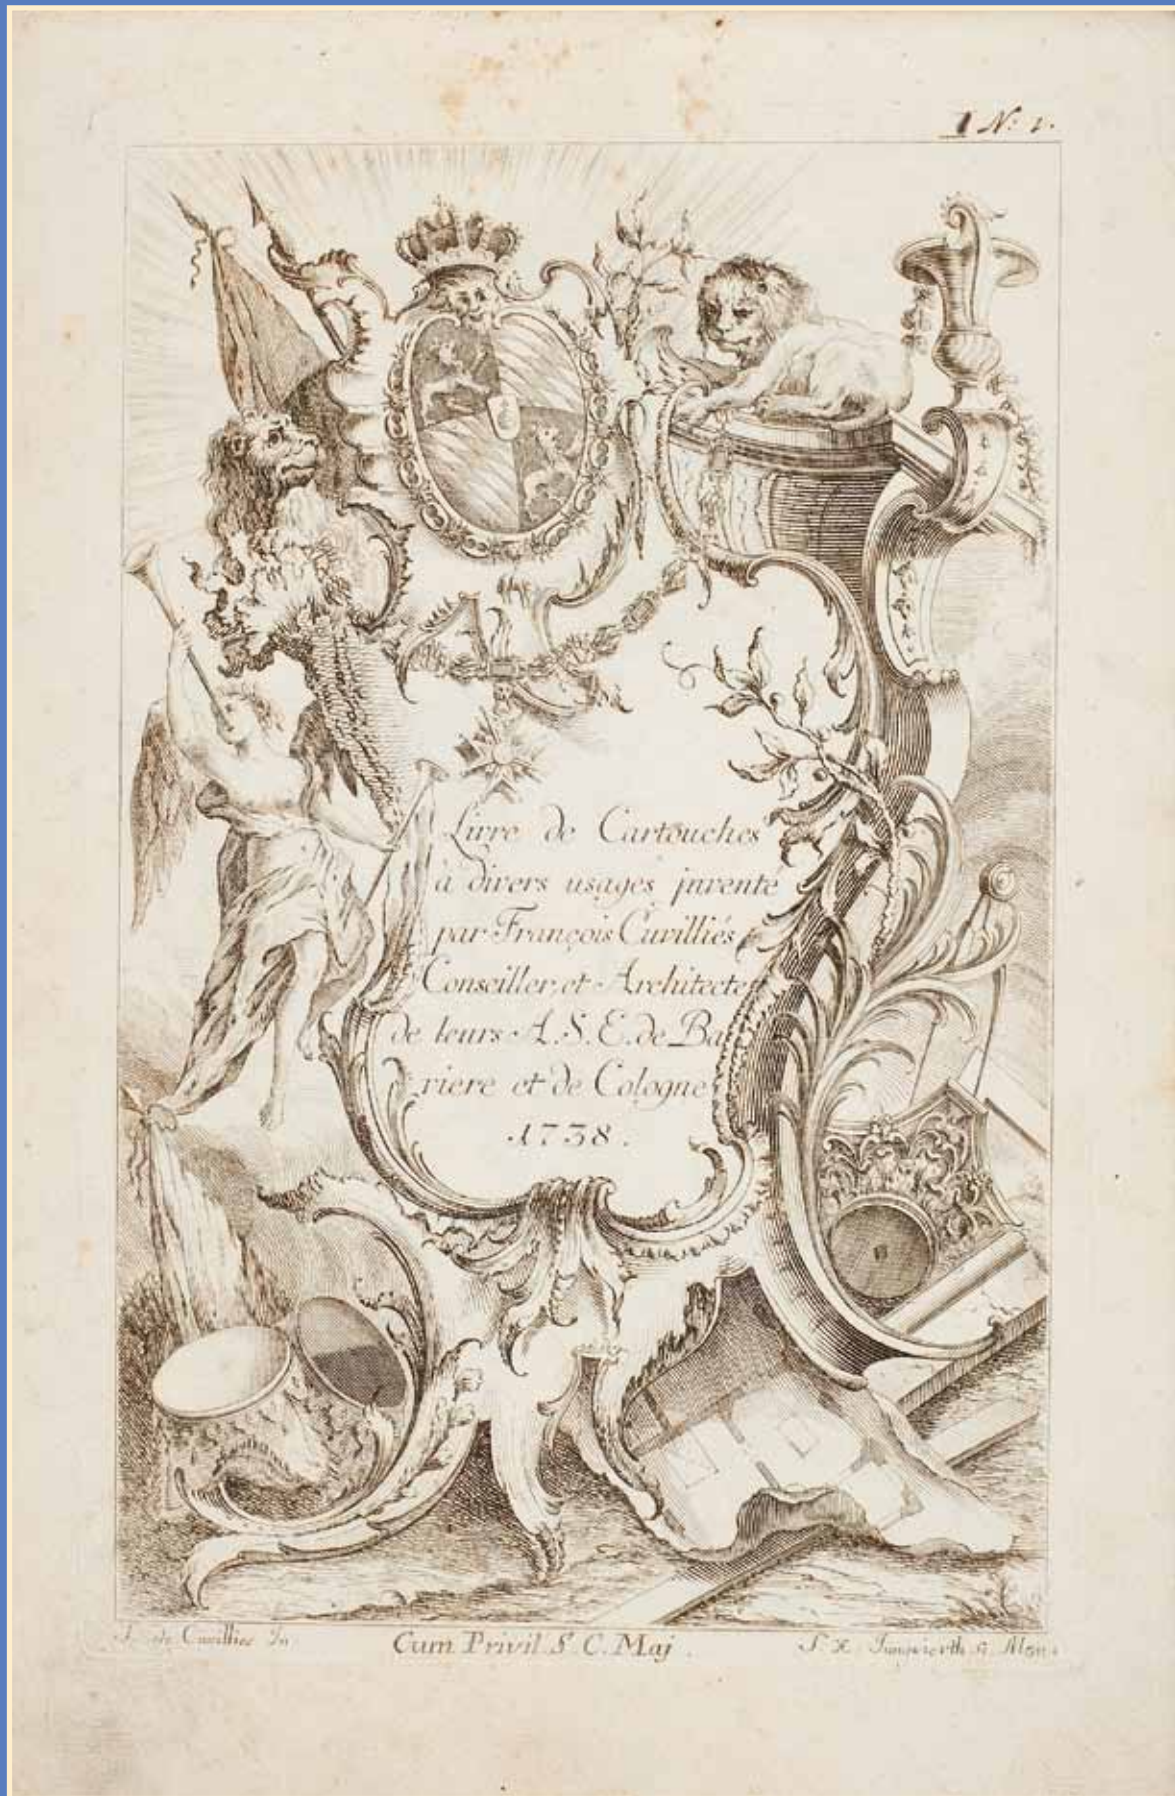 N.º 1.
Livre de Cartouches
à divers usages inventé
par François Cuvilliés
Conseiller, et Architecte
de leurs A. S. E. de Ba
viere et de Cologne
1738.
de Cuvillies In.
Cum Privil. S. C. Maj.
Jungwierth